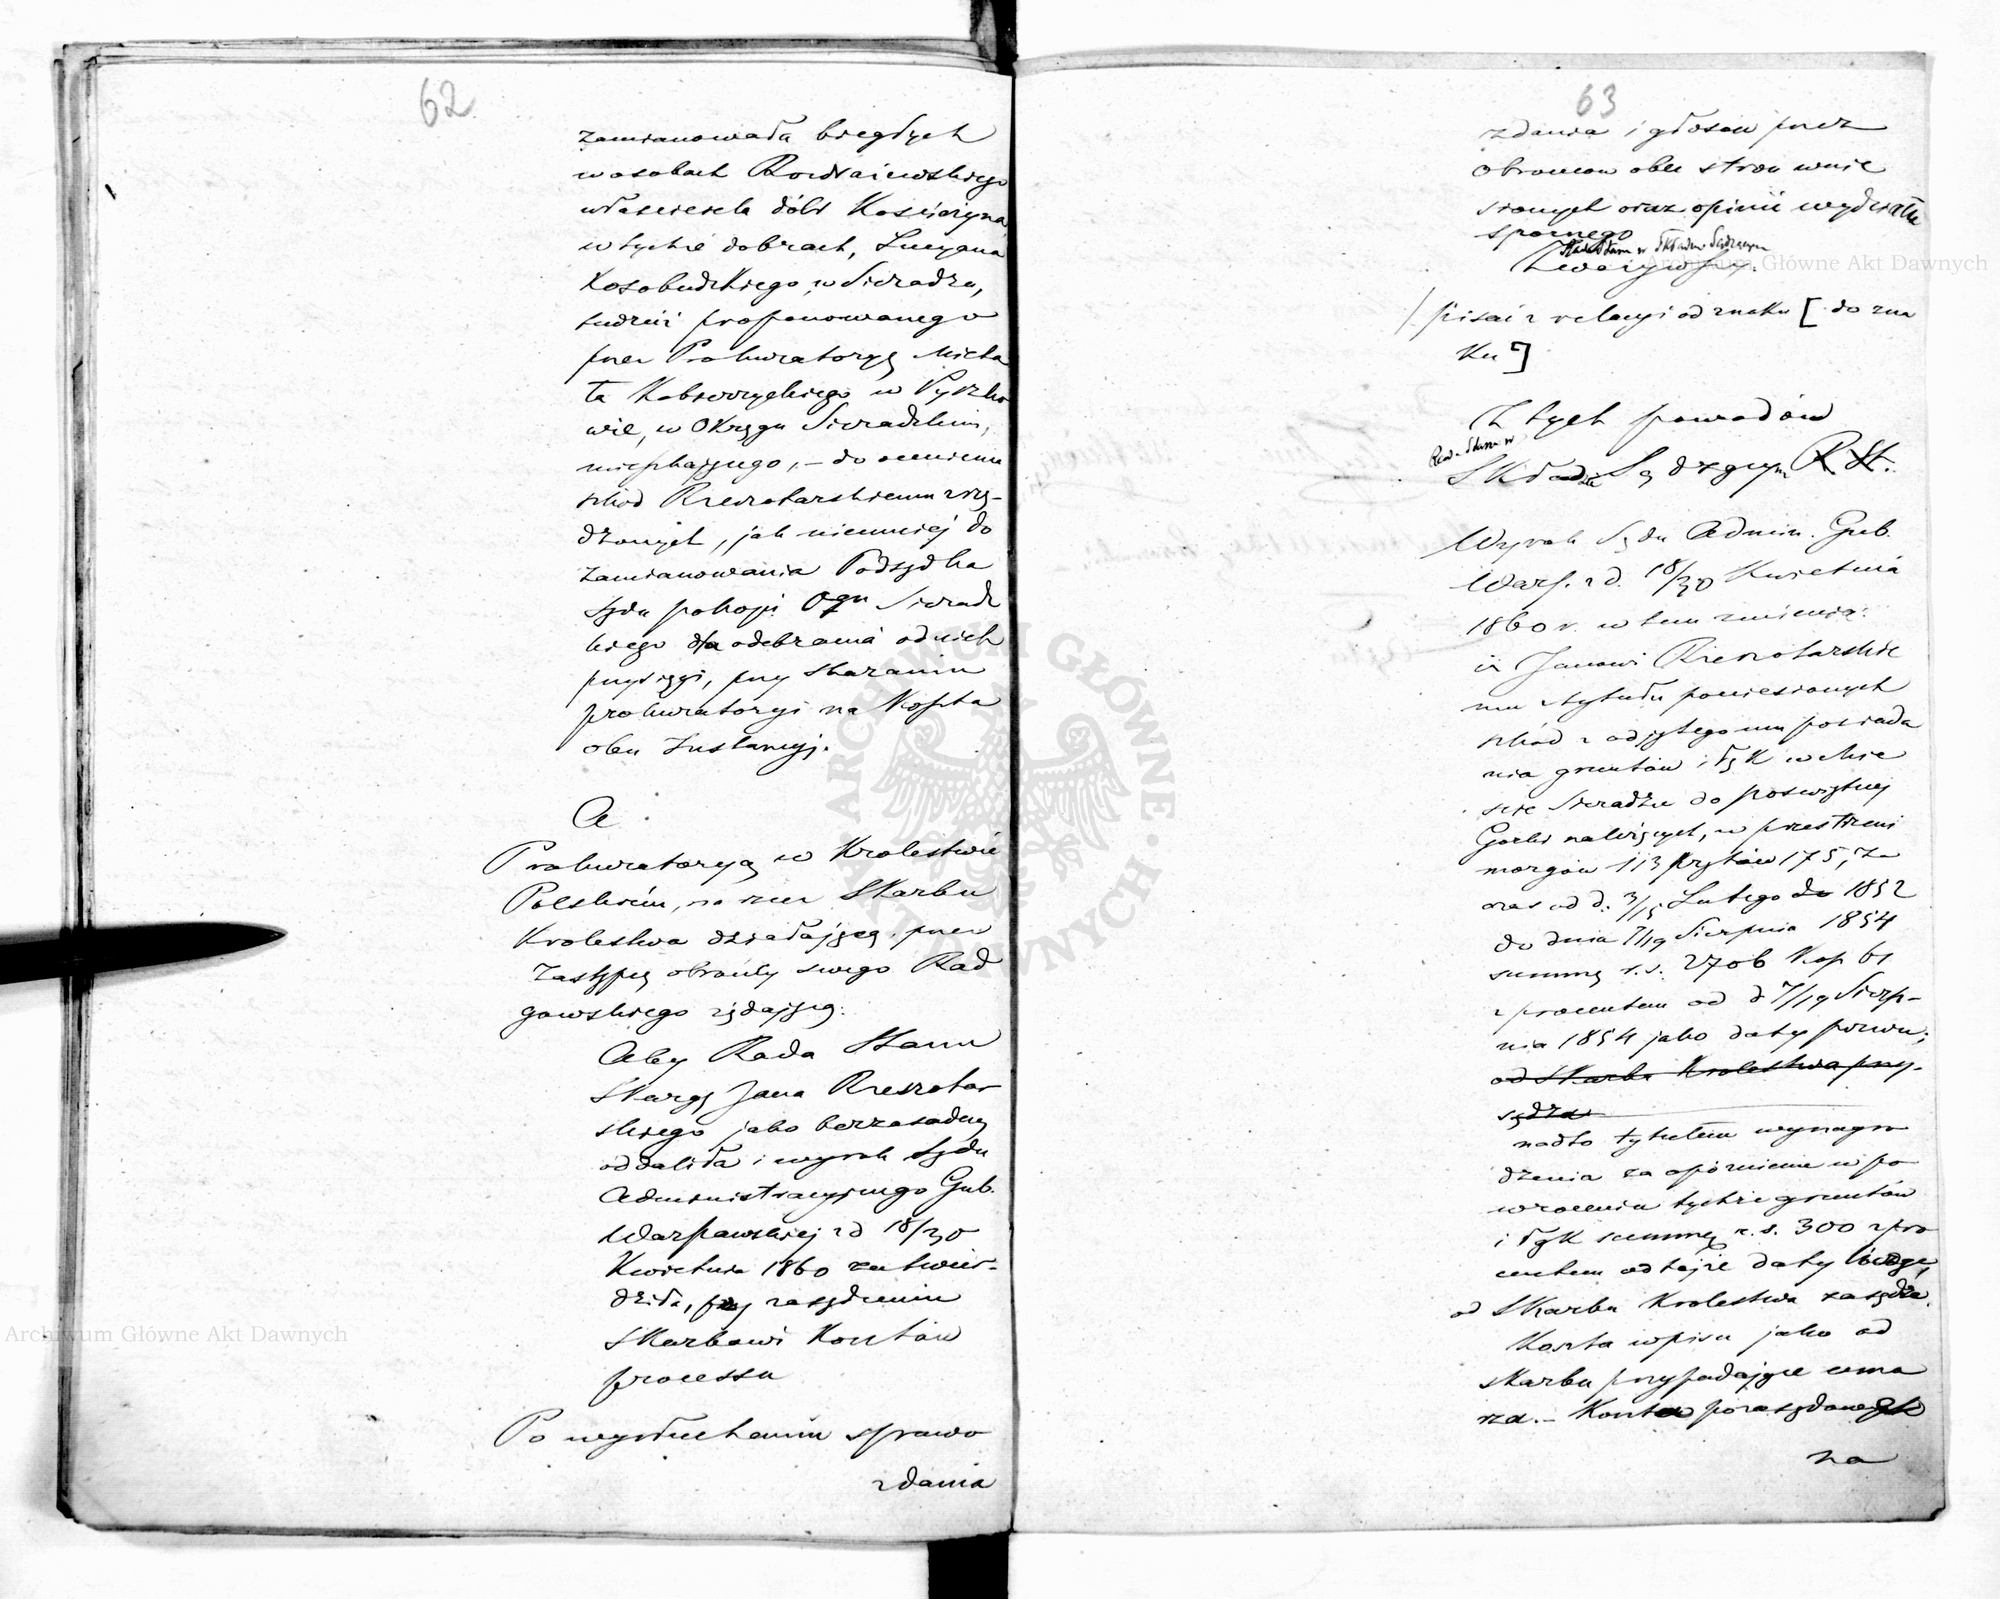 62
zamianowała biegłych
w osobach Rowraiewskiego
właściciela dóbr Kościerzyna
w tychże dobrach, Lucyana
Kosobudzkiego w Sieradzu,
tudzież proponowanego
przez Prokuratoryą Micha
ła Kobierzyckiego w
wie, w Okręgu Sieradzkim,
mieszkającego, – do ocenienia
szkod Rzewotarskiemu zrzą-
dzonych, jak niemniej do
zamianowania Podsędka
Sądu pokoju Ogu Sieradz
kiego dla odebrania od nich
przysięgi, przy skazaniu
prokuratoryi na Koszta
obu Instancyj.
A
Prokuratoryą w Krolestwie
Polskiém, na rzecz Skarbu
Krolestwa działającą przez
Zastępcę obrońcy swego Rad
gowskiego żądającą:
Aby Rada Stanu
Skargę Jana Rzewotar
skiego jako bezzasadną
oddaliła i wyrok Sądu
Administracyjnego Gub.
Warszawskiej z d 18/30
Kwietnia 1860 zatwier-
dziła, przy zasądzeniu
Skarbowi Kosztów
processu
Po wysłuchaniu sprawo
zdania
63
zdania i głosów przez
obrońców obu stron wnie
sionych oraz opinii wydziału
spornego
Rada Stanu w Składzie Sądzącym
Zważywszy.
/ pisać z relacyi od znaku [ do zna
ku ]
Z tych powodów
Rada Stanu w
Składzie Sądzącym R. St.
Wyrok Sądu Admin. Gub.
Warsz. z d. 18/30 Kwietnia
1860 r. w tem zmienia:
iż Janowi Rzewotarskie
mu z tytułu poniesionych
szkód z odjętego mu posiada
nia gruntów i łąk w mie
ście Sieradzu do poswiętnej
Gorki należących, w przestrzeni
morgów 113 prętów 175, za
czas od d. 3/15 Lutego do 1852
do dnia 7/19 Sierpnia 1854
summę r. s. 2706 Kop 61
z procentem od d 7/19 Sierp-
nia 1854 jako daty pozwu;
od Skarbu Krolestwa przy-
sądza
nadto tytułem wynagro
dzenia za opóźnienie w po
wroceniu tychże gruntów
i łąk summę r. s. 300 z pro
centem od tejże daty
od Skarbu Krolestwa zasądza.
Koszta wpisu jako od
skarbu przypadające uma
rza. – Koszta
na
Archiwum Główne Akt Dawnych
Archiwum Główne Akt Dawnych
ARCHIWUM GŁÓWNE AKT DAWNYCH